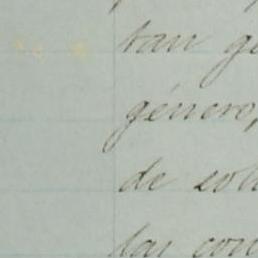 tan ge
género,
de sol
las con